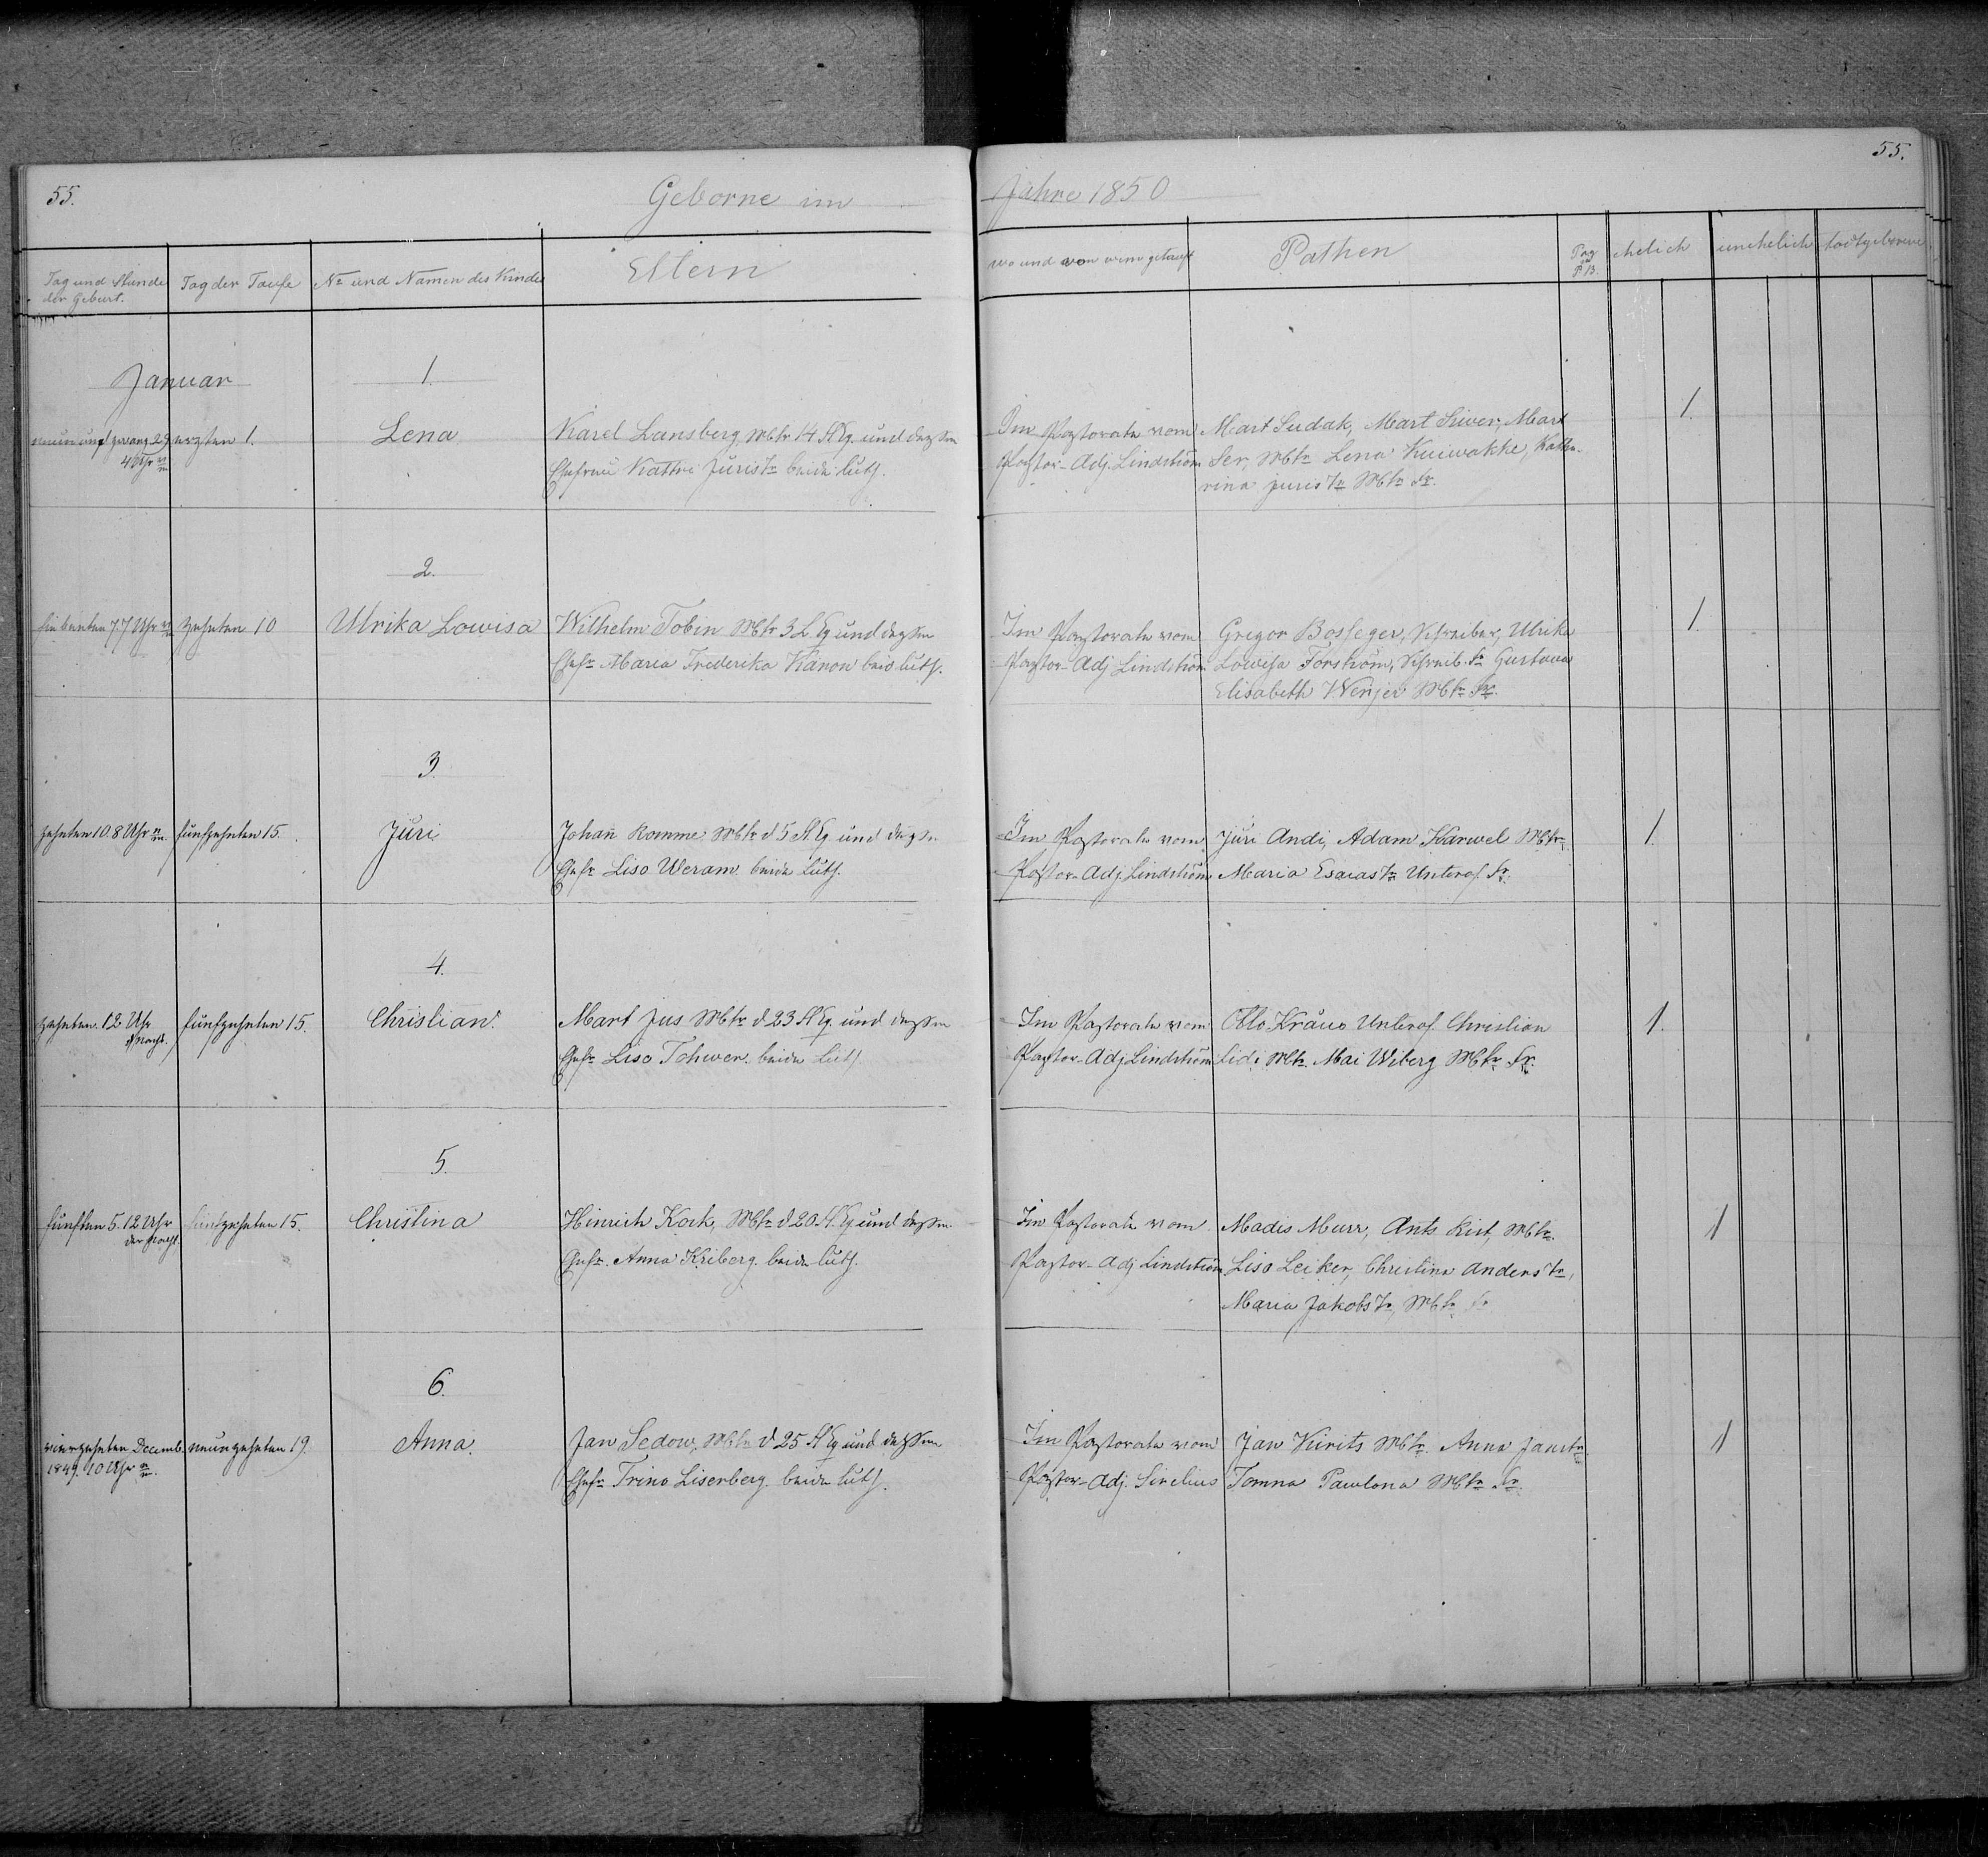 55.
Geborne im Jahre 1850
55.
Tag und Stunde der Geburt.
Tag der Taufe
No und Namen des Kindes
Eltern
wo und von wem getauft
Pathen
Pag P.B.
ehelich
unehelich
todtgeborene
Januar
1.
neunundzwanz 29
4 Uhr
ersten 1.
Lena
Karel Lansberg, Mtr 14 Fl Eq. und dessen
Ehefrau Kattri Juris Tr beide luth.
Im Pastorate vom
Pastor-Adj. Lindström
Mart Sudak, Mart Siwer, Mart
Ser, Mtr Lena Kuiwakke, Kathe-
rina Juris Tr Mtr Fr.
1.
2.
siebenten 7. 7 Uhr
zehnten 10
Ulrika Lowisa
Wilhelm Tobin Mtr 3 L Eq und dessen
Ehefr Maria Frederika Kanon beid luth.
Im Pastorate vom
Pastor-Adj Lindström
Gregor Bosseger, Schreiber, Ulrika
Lowisa Forström, Schreib. Fr Gustava
Elisabeth Werjer Mtr Fr.
1.
3.
zehnten 10. 8 Uhr
fünfzehnten 15.
Jüri
Johan Romme, Mtr d 5 Fl Eq. und dessen
Ehefr Liso Weram. beide luth.
Im Pastorate vom
Pastor-Adj. Lindström
Jüri Andi, Adam Karwel Mtr
Maria Esaias Tr Unterof. Fr.
1.
4.
zehnten. 12 Uhr
Nacht.
fünfzehnten 15.
Christian.
Mart Jus Mtr d 23 Fl Eq. und dessen
Ehefr Liso Tohwer. beide luth.
Im Pastorate vom
Pastor-Adj Lindström
Otto Kraus Unterof. Christian
Lidi Mtr. Mai Wiberg Mtr Fr.
1.
5.
fünften 5. 12 Uhr
der Nacht.
fünfzehnten 15.
Christina
Hinrich Kock, Mtr d 20. Fl. Eq und dessen
Ehefr. Anna Kriberg. beide luth.
Im Pastorate vom
Pastor-Adj Lindström
Madis Murr, Ants Rist, Mtr.
Liso Leiker, Christina Anders Tr,
Maria Jakobs Tr, Mtr Fr
1
6.
vierzehnten Decemb.
1849. 10 Uhr
neunzehnten 19.
Anna.
Jan Sedow, Mtr d 25 Fl Eq und dessen
Ehefr Trino Liserberg. beide luth.
Im Pastorate vom
Pastor-Adj. Sirelius
Jan Kirits Mtr. Anna Jans Tr
Tomna Pawlona Mtr Fr.
1